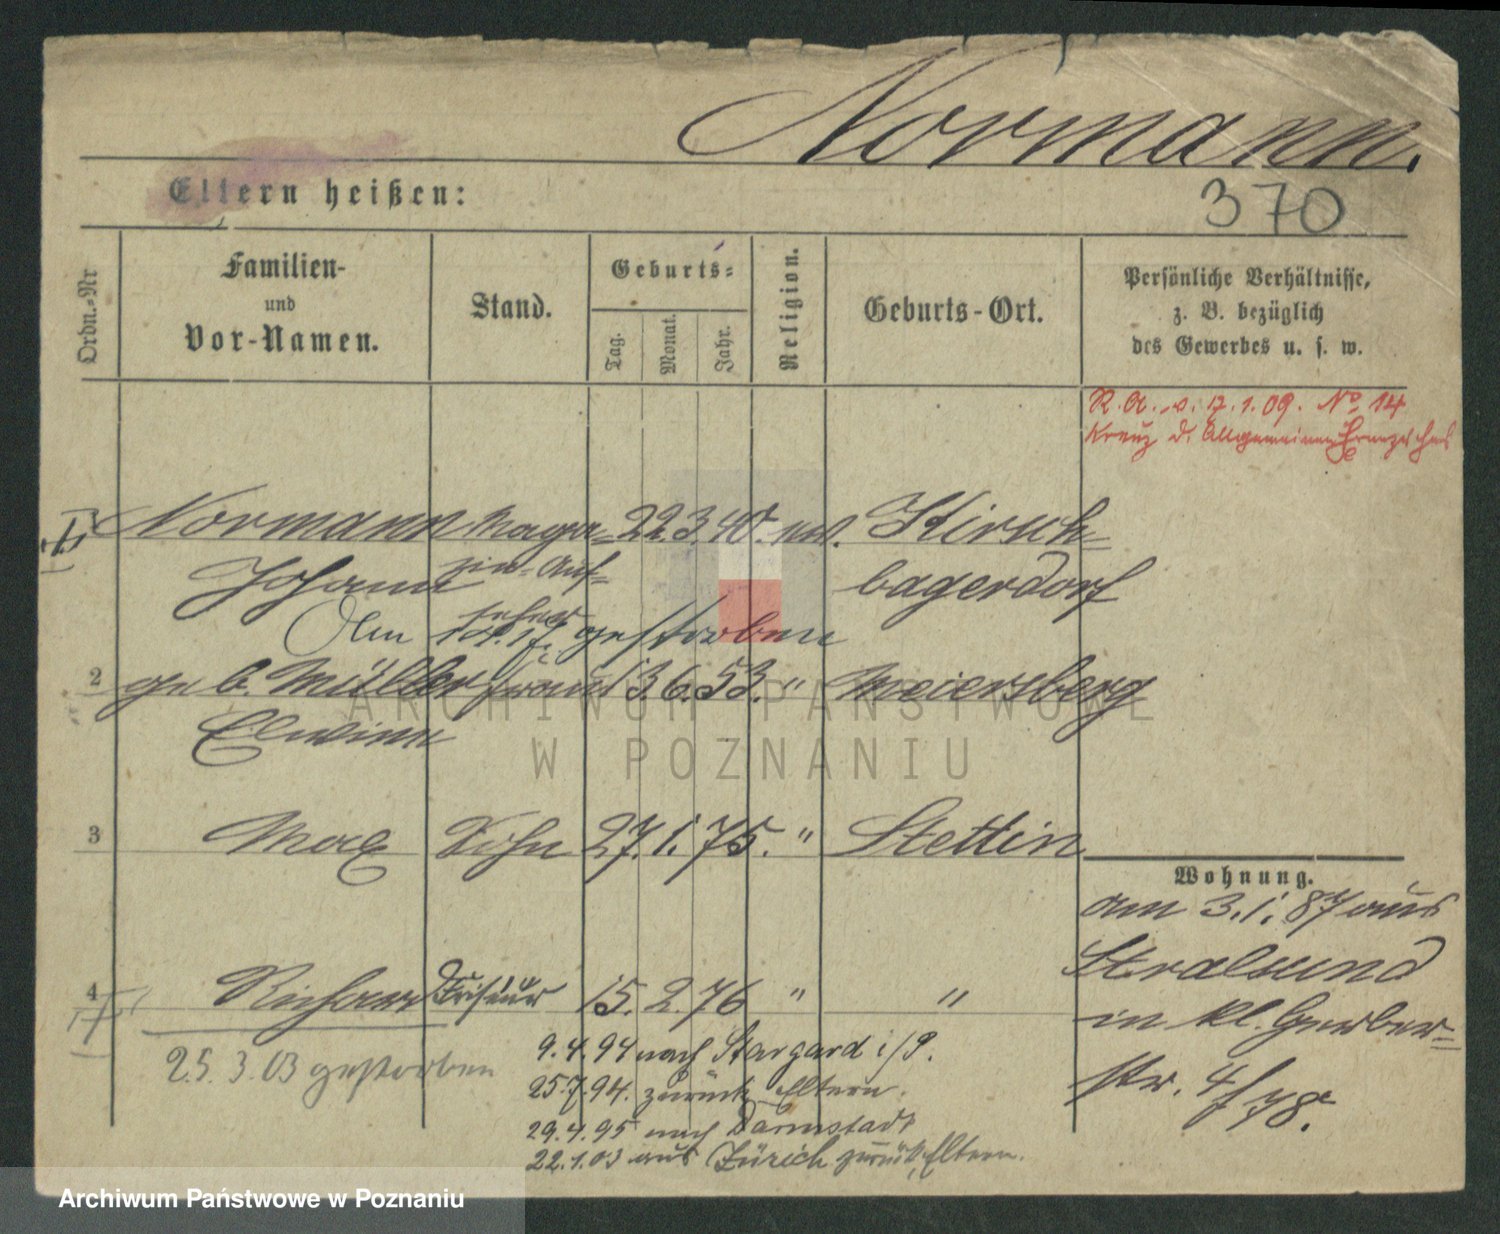 Normann.
Eltern heißen:
370
Ordn.-Nr
Familien-
und
Vor-Namen.
Stand.
Geburts-
Tag.
Monat.
Jahr.
Religion.
Geburts-Ort.
Persönliche Verhältnisse,
z. B. bezüglich
des Gewerbes u. s. w.
R. A. v. 17.1.09. No 14
Kreuz d. Allgemeinen
Normann Maga= 22. 3. 40. Kirsch=
Johann zin-Auf= bagerdorf
seher
Am gestorben
2 geb. Müller Frau 13. 6. 53. " Meiersberg
Elwine
3 Max Sohn 27. 1. 75. " Stettin
Wohnung.
am 3. 1. 87 aus
Stralsund
4 Richard Friseur 15. 2. 76 " "
in kl. Gerber=
str. 4/78.
25.3.03 gestorben
9.4.94 nach Stargard i/P.
25.7.94. zurück Eltern.
29.4.95 nach Darmstadt
22.1.03 aus Zürich zurück, Eltern.
ARCHIWUM PAŃSTWOWE
W POZNANIU
Archiwum Państwowe w Poznaniu